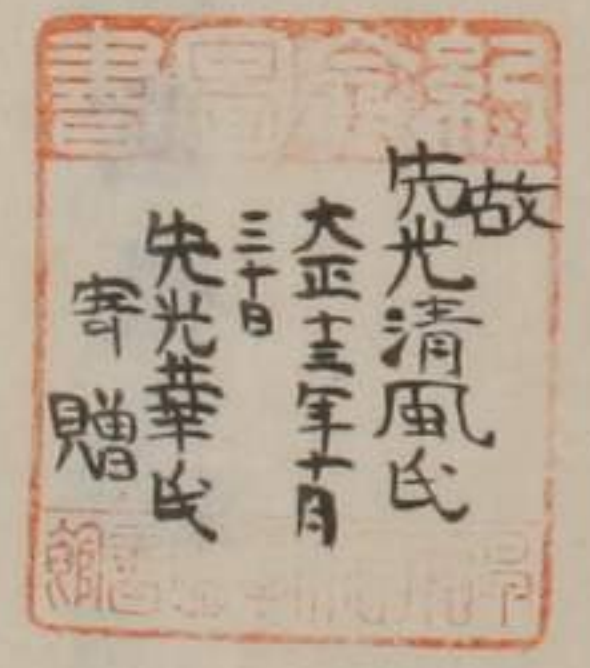 紀念圖書
故
先光清風氏
大正十三年十月
三十日
先光華氏
寄贈